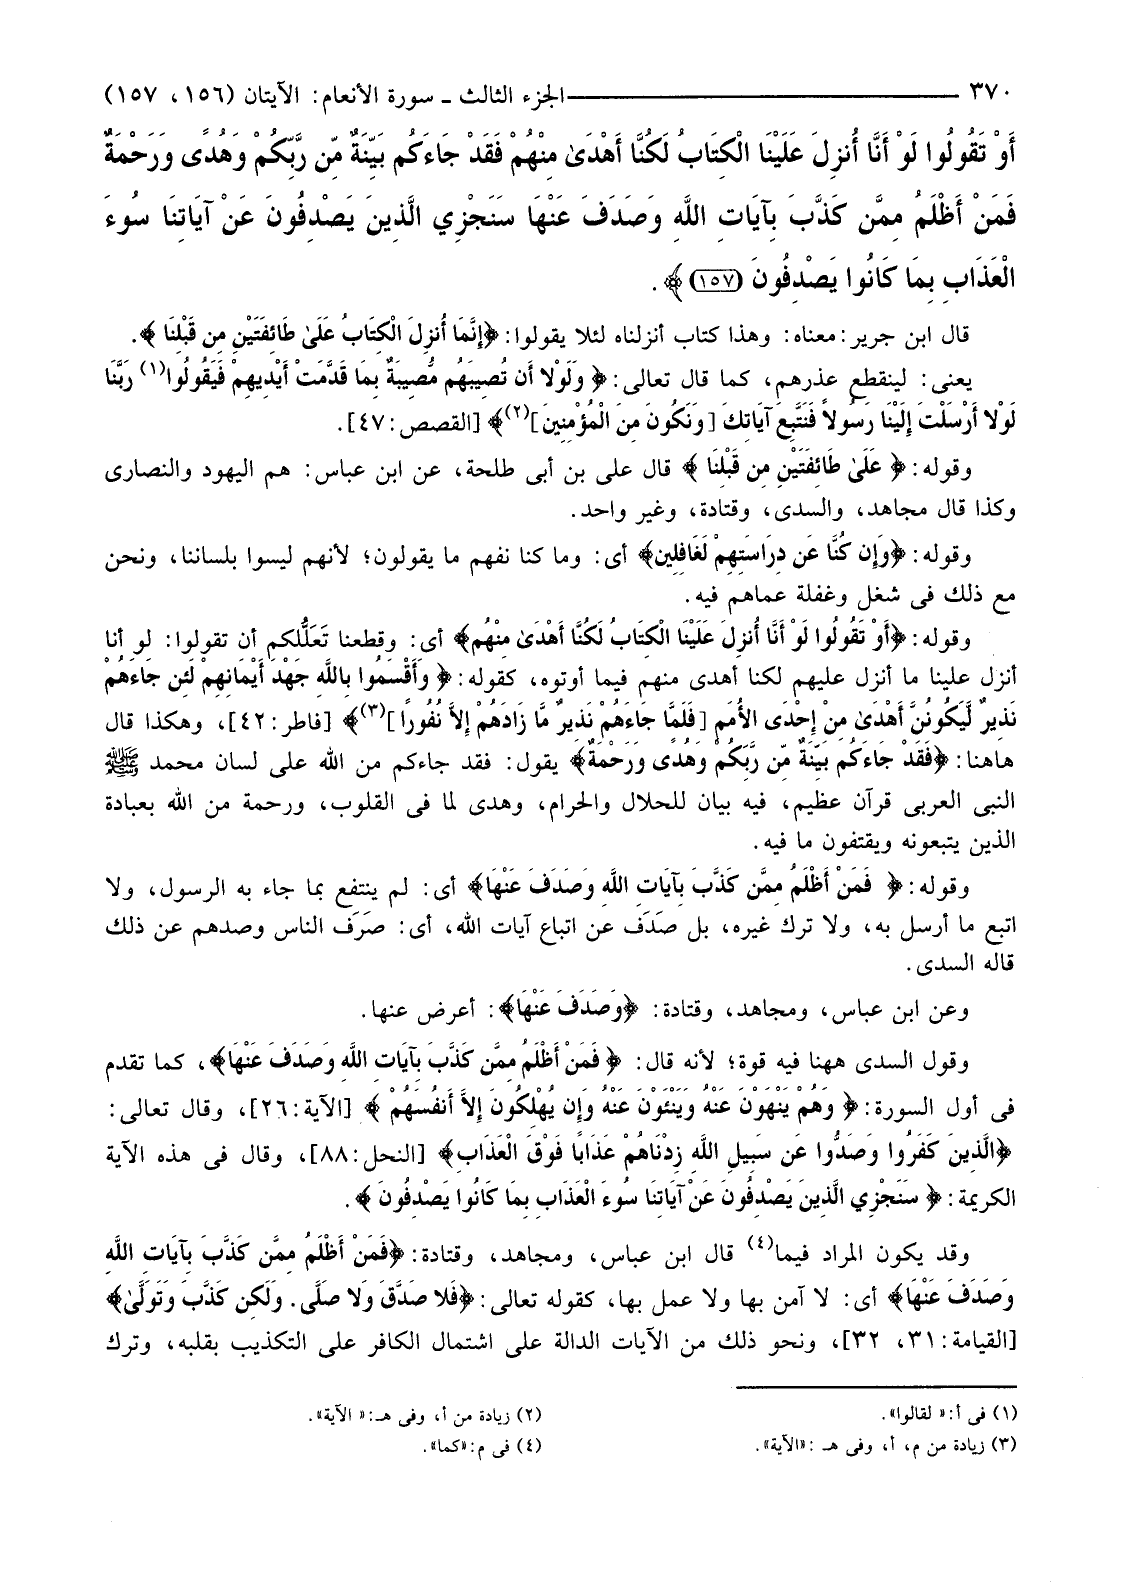 ٣٧٠ ــــــ الجزء الثالث ـ سورة الأنعام: الآيتان (١٥٦، ١٥٧)
أَوْ تَقُولُوا لَوْ أَنَّا أُنزِلَ عَلَيْنَا الْكِتَابُ لَكُنَّا أَهْدَىٰ مِنْهُمْ فَقَدْ جَاءَكُم بَيِّنَةٌ مِّن رَّبِّكُمْ وَهُدًى وَرَحْمَةٌ
فَمَنْ أَظْلَمُ مِمَّن كَذَّبَ بِآيَاتِ اللَّهِ وَصَدَفَ عَنْهَا سَنَجْزِي الَّذِينَ يَصْدِفُونَ عَنْ آيَاتِنَا سُوءَ
الْعَذَابِ بِمَا كَانُوا يَصْدِفُونَ (١٥٧)﴾ .
قال ابن جرير: معناه: وهذا كتاب أنزلناه لئلا يقولوا: ﴿إِنَّمَا أُنزِلَ الْكِتَابُ عَلَىٰ طَائِفَتَيْنِ مِن قَبْلِنَا ﴾.
يعنى: لينقطع عذرهم، كما قال تعالى: ﴿ وَلَوْلا أَن تُصِيبَهُم مُّصِيبَةٌ بِمَا قَدَّمَتْ أَيْدِيهِمْ فَيَقُولُوا(١) رَبَّنَا
لَوْلا أَرْسَلْتَ إِلَيْنَا رَسُولاً فَنَتَّبِعَ آيَاتِكَ [وَنَكُونَ مِنَ الْمُؤْمِنِينَ](٢)﴾ [القصص:٤٧].
وقوله: ﴿ عَلَىٰ طَائِفَتَيْنِ مِن قَبْلِنَا ﴾ قال على بن أبى طلحة، عن ابن عباس: هم اليهود والنصارى
وكذا قال مجاهد، والسدى، وقتادة، وغير واحد.
وقوله: ﴿وَإِن كُنَّا عَن دِرَاسَتِهِمْ لَغَافِلِين﴾ أى: وما كنا نفهم ما يقولون؛ لأنهم ليسوا بلساننا، ونحن
مع ذلك فى شغل وغفلة عماهم فيه.
وقوله: ﴿أَوْ تَقُولُوا لَوْ أَنَّا أُنزِلَ عَلَيْنَا الْكِتَابُ لَكُنَّا أَهْدَىٰ مِنْهُم﴾ أى: وقطعنا تَعَلُّلكم أن تقولوا: لو أنا
أنزل علينا ما أنزل عليهم لكنا أهدى منهم فيما أوتوه، كقوله: ﴿ وَأَقْسَمُوا بِاللَّهِ جَهْدَ أَيْمَانِهِمْ لَئِن جَاءَهُمْ
نَذِيرٌ لَّيَكُونُنَّ أَهْدَىٰ مِنْ إِحْدَى الأُمَمِ [فَلَمَّا جَاءَهُمْ نَذِيرٌ مَّا زَادَهُمْ إِلاَّ نُفُورًا](٣)﴾ [فاطر:٤٢]، وهكذا قال
هاهنا: ﴿فَقَدْ جَاءَكُم بَيِّنَةٌ مِّن رَّبِّكُمْ وَهُدًى وَرَحْمَةٌ﴾ يقول: فقد جاءكم من الله على لسان محمد ﷺ
النبى العربى قرآن عظيم، فيه بيان للحلال والحرام، وهدى لما فى القلوب، ورحمة من الله بعبادة
الذين يتبعونه ويقتفون ما فيه.
وقوله: ﴿ فَمَنْ أَظْلَمُ مِمَّن كَذَّبَ بِآيَاتِ اللَّهِ وَصَدَفَ عَنْهَا﴾ أى: لم ينتفع بما جاء به الرسول، ولا
اتبع ما أرسل به، ولا ترك غيره، بل صَدَف عن اتباع آيات الله، أى: صَرَف الناس وصدهم عن ذلك
قاله السدى.
وعن ابن عباس، ومجاهد، وقتادة: ﴿وَصَدَفَ عَنْهَا﴾: أعرض عنها.
وقول السدى ههنا فيه قوة؛ لأنه قال: ﴿ فَمَنْ أَظْلَمُ مِمَّن كَذَّبَ بِآيَاتِ اللَّهِ وَصَدَفَ عَنْهَا﴾، كما تقدم
فى أول السورة: ﴿ وَهُمْ يَنْهَوْنَ عَنْهُ وَيَنْئَوْنَ عَنْهُ وَإِن يُهْلِكُونَ إِلاَّ أَنفُسَهُمْ ﴾ [الآية:٢٦]، وقال تعالى:
﴿الَّذِينَ كَفَرُوا وَصَدُّوا عَن سَبِيلِ اللَّهِ زِدْنَاهُمْ عَذَابًا فَوْقَ الْعَذَابِ﴾ [النحل:٨٨]، وقال فى هذه الآية
الكريمة: ﴿ سَنَجْزِي الَّذِينَ يَصْدِفُونَ عَنْ آيَاتِنَا سُوءَ الْعَذَابِ بِمَا كَانُوا يَصْدِفُونَ ﴾.
وقد يكون المراد فيما(٤) قال ابن عباس، ومجاهد، وقتادة: ﴿فَمَنْ أَظْلَمُ مِمَّن كَذَّبَ بِآيَاتِ اللَّهِ
وَصَدَفَ عَنْهَا﴾ أى: لا آمن بها ولا عمل بها، كقوله تعالى: ﴿فَلا صَدَّقَ وَلا صَلَّى. وَلَكِن كَذَّبَ وَتَوَلَّىٰ﴾
[القيامة:٣١، ٣٢]، ونحو ذلك من الآيات الدالة على اشتمال الكافر على التكذيب بقلبه، وترك
(١) فى أ: « لقالوا».
(٢) زيادة من أ، وفى هـ: « الآية».
(٣) زيادة من م، أ، وفى هـ : «الآية».
(٤) فى م: «كما».